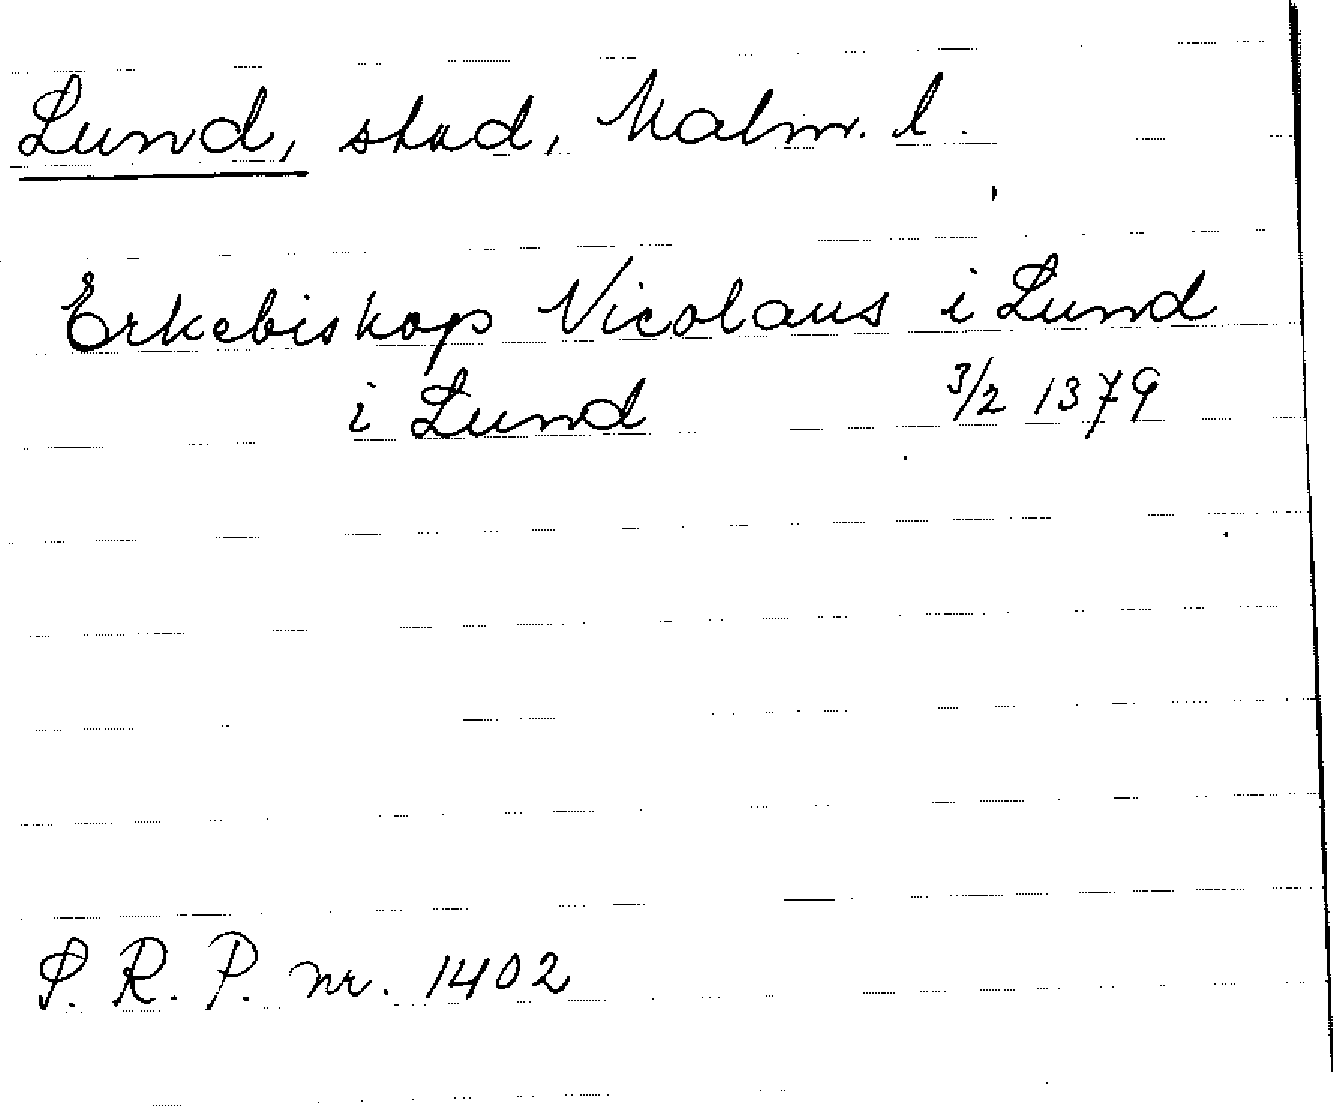 Lund, stad, Malm. l.
Erkebiskop Nicolaus i Lund
i Lund 3/2 1379
S. R. P. nr. 1402